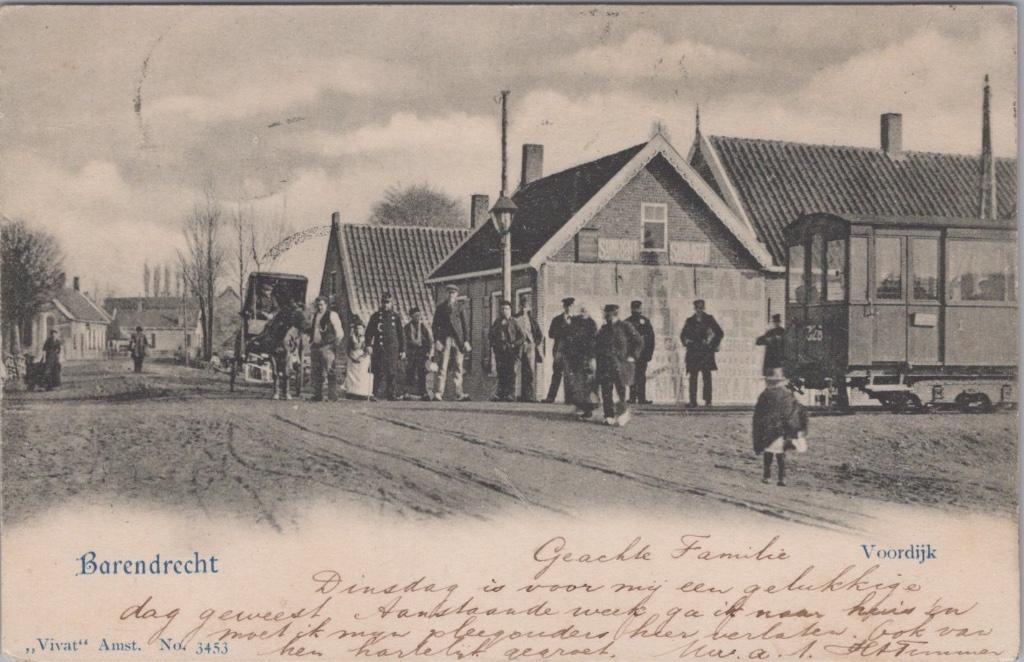 328
Barendrecht
Voordijk
Geachte Familie
Dinsdag is voor mij een gelukkige
dag geweest. Aanstaande week ga ik naar huis en
moet ik mijn pleegouders hier verlaten. Ook van
hen hartelijk gegroet. Uw a. t. HTimmer
„Vivat“ Amst. No. 3453